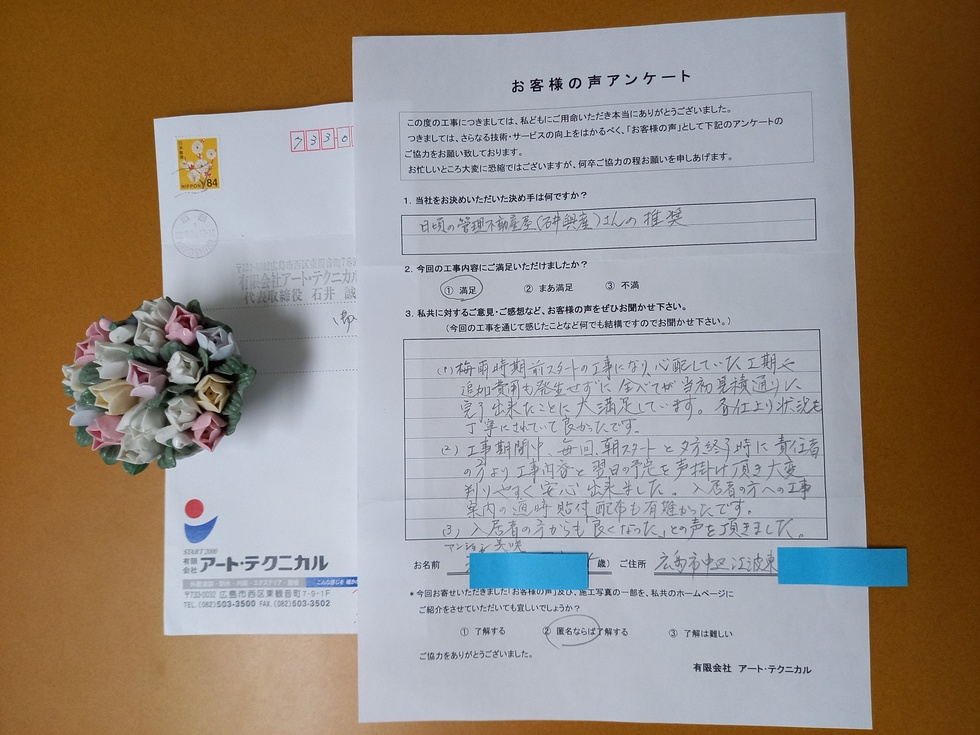 お客様の声アンケート
この度の工事につきましては、私どもにご用命いただき本当にありがとうございました。
つきましては、さらなる技術・サービスの向上をはかるべく、「お客様の声」として下記のアンケートの
ご協力をお願い致しております。
お忙しいところ大変に恐縮ではございますが、何卒ご協力の程お願いを申しあげます。
1. 当社をお決めいただいた決め手は何ですか？
日頃の管理不動産屋(石井興産)さんの推奨
2. 今回の工事内容にご満足いただけましたか？
① 満足 ② まあ満足 ③ 不満
3. 私共に対するご意見・ご感想など、お客様の声をぜひお聞かせ下さい。
(今回の工事を通じて感じたことなど何でも結構ですのでお聞かせ下さい。)
(1) 梅雨時期前スタートの工事になり、心配していた工期や
追加費用も発生せずに全べてが当初見積通りに
完了出来たことに大満足しています。各仕上り状況も
丁寧にされていて良かったです。
(2) 工事期間中、毎回、朝スタートと夕方終了時に責任者
の方より工事内容と翌日の予定を声掛け頂き大変
判りやすく安心出来ました。入居者の方への工事
案内の適時貼付配布も有難かったです。
(3) 入居者の方からも「良くなった」との声を頂きました。
マンション
お名前 歳) ご住所 広島市中区江波東
*今回お寄せいただきました「お客様の声」及び、施工写真の一部を、私共のホームページに
ご紹介をさせていただいても宜しいでしょうか？
① 了解する ② 匿名ならば了解する ③ 了解は難しい
ご協力をありがとうございました。
有限会社 アート・テクニカル
日本郵便
NIPPON 84
733-0
有限会社アート・テクニカル
代表取締役 石井 誠
START 2000
有限会社 アート・テクニカル
〒733-0032 広島市西区東観音町7-9-1F
TEL.(082)503-3500 FAX.(082)503-3502